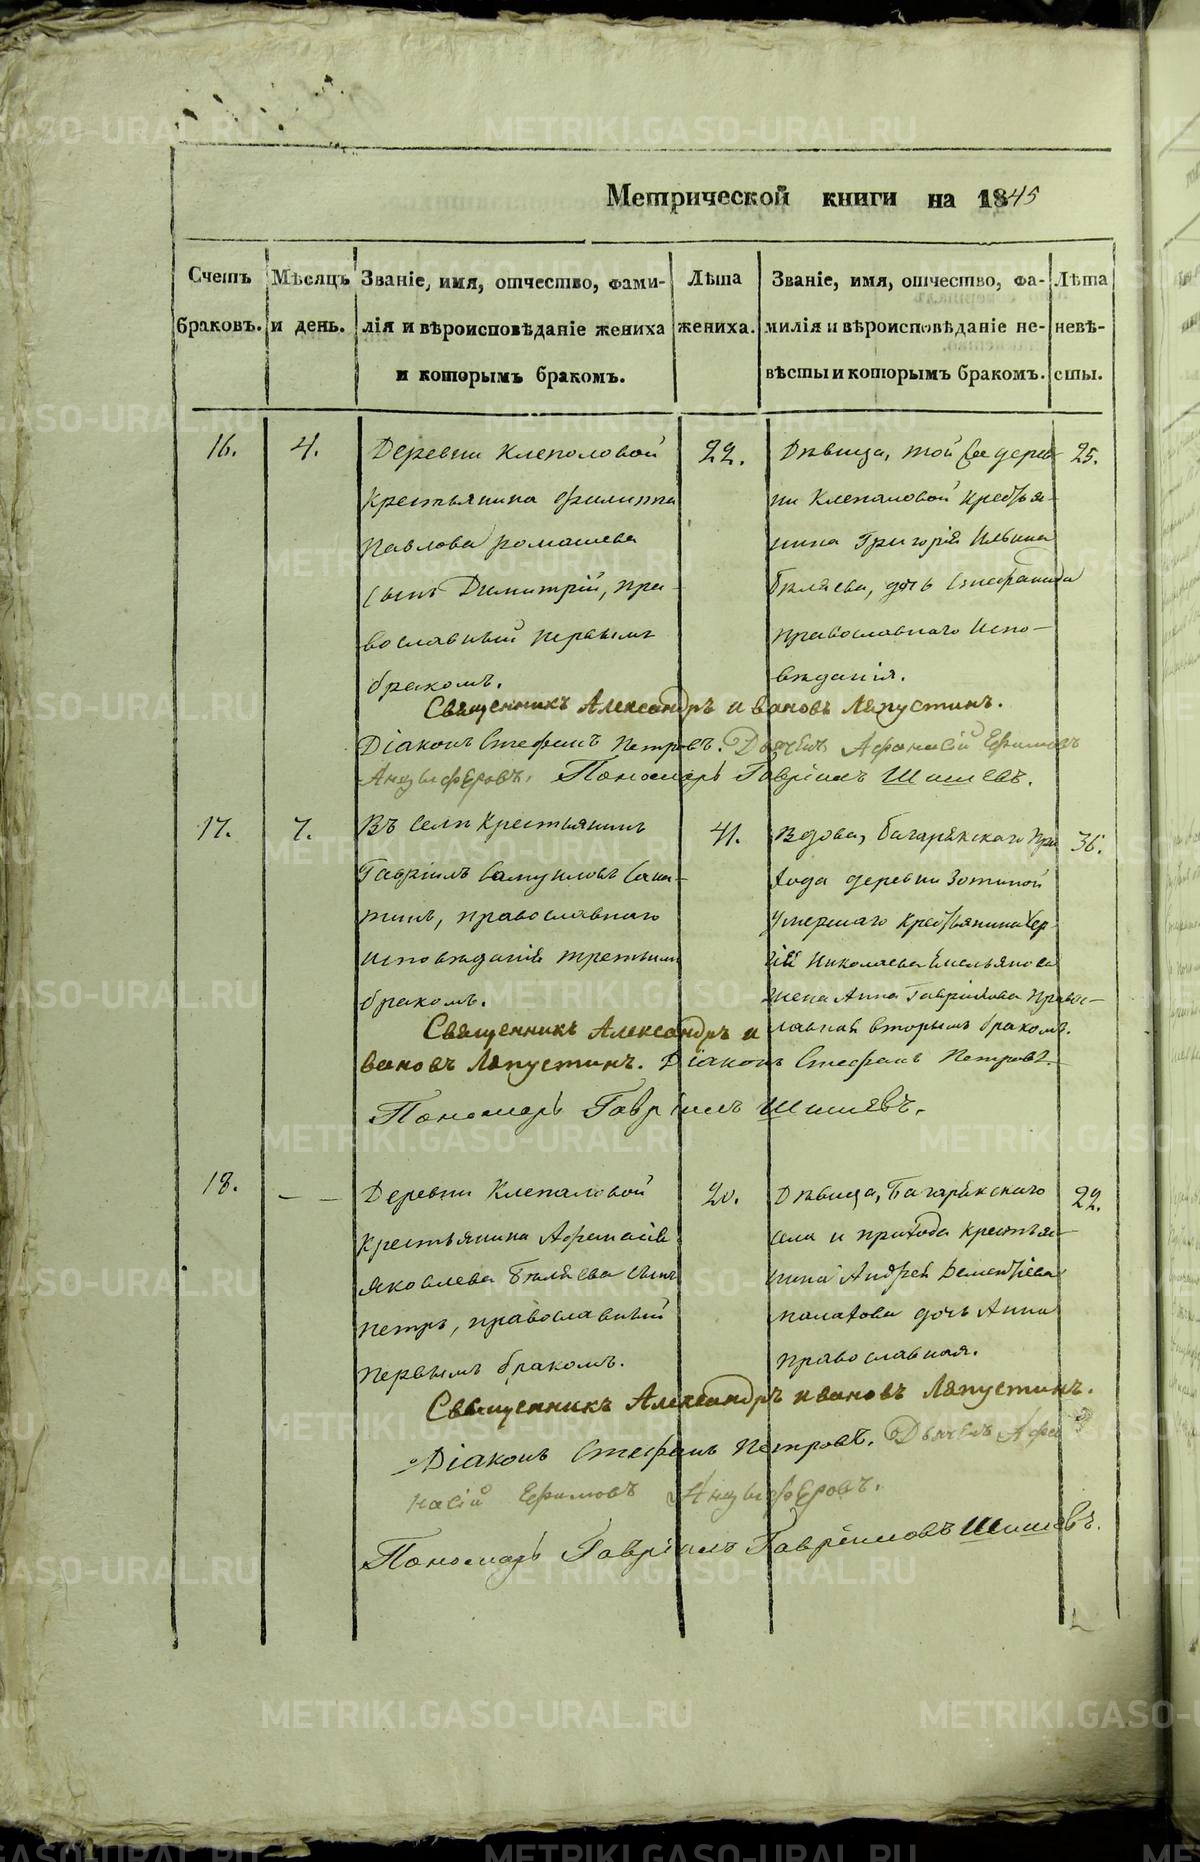 Метрической книги на 1845
Счетъ браковъ.
Мѣсяцъ и день.
Званіе, имя, отчество, фами-
лія и вѣроисповѣданіе жениха
и которымъ бракомъ.
Лѣта
жениха.
Званіе, имя, отчество, фа-
милія и вѣроисповѣданіе не-
вѣсты и которымъ бракомъ.
Лѣта
невѣ-
сты.
16.
4.
Деревни Клепаловой
Крестьянина Филиппа
Павлова Ромашева
сынъ Димитрій, пра-
вославный первымъ
бракомъ.
22.
Дѣвица, той же дерев-
ни Клепаловой Крестья-
нина Григорія Ильина
Бѣляева, дочь Стефанида
православнаго испо-
вѣданія.
25.
Священникъ Александръ Ивановъ Ляпустинъ.
Діаконъ Стефанъ Петровъ. Дьячекъ Афанасій Ефимовъ
Анцыферовъ. Пономарь Гавріилъ Шишевъ.
17.
7.
Въ селѣ Крестьянинъ
Гавріилъ Самуиловъ
православнаго
исповѣданія третьимъ
бракомъ.
41.
Вдова, Багарякскаго при
хода деревни Зотиной
умершаго Крестьянина Сер
гія Николаева Емельянова
жена Анна Гаврилова Правос-
лавная вторымъ бракомъ.
36.
Священникъ Александръ И
вановъ Ляпустинъ. Діаконъ Стефанъ Петровъ.
Пономарь Гавріилъ Шишевъ.
18.
— —
Деревни Клепаловой
Крестьянина Афанасія
Яковлева Бѣляева сынъ
Петръ, православный
первымъ бракомъ.
20.
Дѣвица, Багарякскаго
села и прихода Крестья-
нина Андрея Дементіева
Малахова дочь Анна
православная.
22.
Священникъ Александръ Ивановъ Ляпустинъ.
Діаконъ Стефанъ Петровъ. Дьячекъ Афа
насій Ефимовъ Анцыферовъ.
Пономарь Гавріилъ Гавриловъ Шишевъ.
METRIKI.GASO-URAL.RU